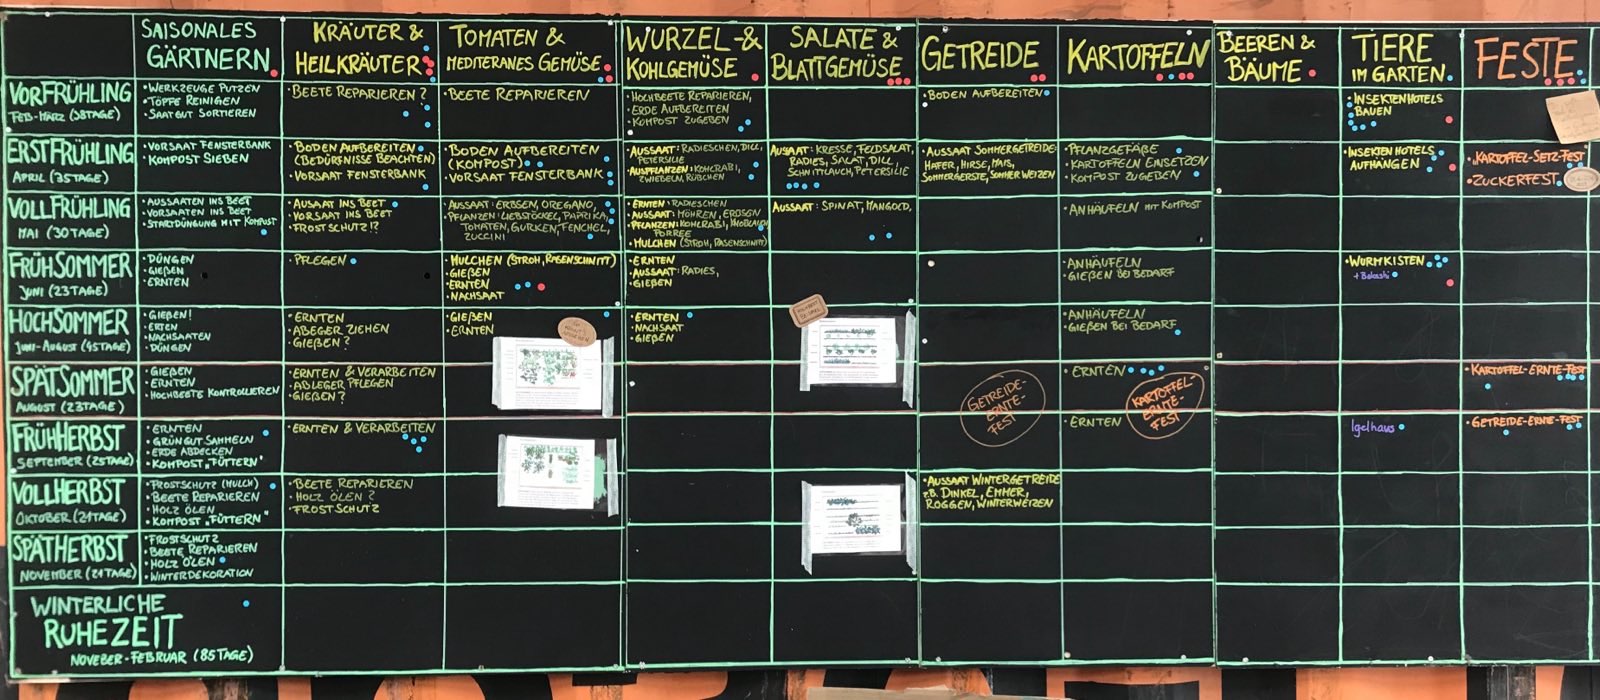 SAISONALES
GÄRTNERN
KRÄUTER &
HEILKRÄUTER
TOMATEN &
MEDITERANES GEMÜSE
WURZEL- &
KOHLGEMÜSE
SALATE &
BLATTGEMÜSE
GETREIDE
KARTOFFELN
BEEREN &
BÄUME
TIERE
IM GARTEN
FESTE
VORFRÜHLING
FEB-MÄRZ (38TAGE)
• WERKZEUGE PUTZEN
• TÖPFE REINIGEN
• SAATGUT SORTIEREN
• BEETE REPARIEREN?
• BEETE REPARIEREN
• HOCHBEETE REPARIEREN,
ERDE AUFBEREITEN
• KOMPOST ZUGEBEN
• BODEN AUFBEREITEN
• INSEKTENHOTELS
BAUEN
ERSTFRÜHLING
APRIL (35TAGE)
• VORSAAT FENSTERBANK
• KOMPOST SIEBEN
• BODEN AUFBEREITEN
(BEDÜRFNISSE BEACHTEN)
• VORSAAT FENSTERBANK
• BODEN AUFBEREITEN
(KOMPOST)
• VORSAAT FENSTERBANK
• AUSSAAT: RADIESCHEN, DILL,
PETERSILIE
• AUSPFLANZEN: KOHLRABI,
ZWIEBELN, RÜBCHEN
AUSSAAT: KRESSE, FELDSALAT,
RADIES, SALAT, DILL,
SCHNITTLAUCH, PETERSILIE
• AUSSAAT SOMMERGETREIDE:
HAFER, HIRSE, MAIS,
SOMMERGERSTE, SOMMERWEIZEN
• PFLANZGEFÄßE
• KARTOFFELN EINSETZEN
• KOMPOST ZUGEBEN
• INSEKTENHOTELS
AUFHÄNGEN
• KARTOFFEL-SETZ-FEST
• ZUCKERFEST
VOLLFRÜHLING
MAI (30TAGE)
• AUSSAATEN INS BEET
• VORSAATEN INS BEET
• STARTDÜNGUNG MIT KOMPOST
• AUSAAT INS BEET
• VORSAAT INS BEET
• FROSTSCHUTZ!?
• AUSSAAT: ERBSEN, OREGANO,
• PFLANZEN: LIEBSTÖCKEL, PAPRIKA,
TOMATEN, GURKEN, FENCHEL,
ZUCCINI
• ERNTEN: RADIESCHEN
• AUSSAAT: MÖHREN, ERBSEN
• PFLANZEN: KOHLRABI, KNOBLAUCH
PORREE
• MULCHEN (STROH, RASENSCHNITT)
AUSSAAT: SPINAT, MANGOLD,
• ANHÄUFELN MIT KOMPOST
FRÜHSOMMER
JUNI (23TAGE)
• DÜNGEN
• GIEßEN
• ERNTEN
• PFLEGEN
• MULCHEN (STROH, RASENSCHNITT)
• GIEßEN
• ERNTEN
• NACHSAAT
• ERNTEN
• AUSSAAT: RADIES,
• GIEßEN
• ANHÄUFELN
• GIEßEN BEI BEDARF
• WURMKISTEN
+ Bokashi
HOCHSOMMER
JUNI-AUGUST (45TAGE)
• GIEßEN!
• ERTEN
• NACHSAATEN
• DÜNGEN
• ERNTEN
• ABEGER ZIEHEN
• GIEßEN?
• GIEßEN
• ERNTEN
• ERNTEN
• NACHSAAT
• GIEßEN
• ANHÄUFELN
• GIEßEN BEI BEDARF
SPÄTSOMMER
AUGUST (23TAGE)
• GIEßEN
• ERNTEN
• HOCHBEETE KONTROLLIEREN
• ERNTEN & VERARBEITEN
• ABLEGER PFLEGEN
• GIEßEN?
GETREIDE-
ERNTE-
FEST
• ERNTEN
KARTOFFEL-
ERNTE-
FEST
• KARTOFFEL-ERNTE-FEST
FRÜHHERBST
SEPTEMBER (25TAGE)
• ERNTEN
• GRÜNGUT SAMMELN
• ERDE ABDECKEN
• KOMPOST „FÜTTERN"
• ERNTEN & VERARBEITEN
• ERNTEN
Igelhaus
• GETREIDE-ERNTE-FEST
VOLLHERBST
OKTOBER (21TAGE)
• FROSTSCHUTZ (MULCH)
• BEETE REPARIEREN
• HOLZ ÖLEN
• KOMPOST „FÜTTERN"
• BEETE REPARIEREN
• HOLZ ÖLEN?
• FROSTSCHUTZ
• AUSSAAT WINTERGETREIDE
Z.B. DINKEL, EMMER,
ROGGEN, WINTERWEIZEN
SPÄTHERBST
NOVEMBER (21TAGE)
• FROSTSCHUTZ
• BEETE REPARIEREN
• HOLZ ÖLEN
• WINTERDEKORATION
WINTERLICHE
RUHEZEIT
NOVEBER-FEBRUAR (85TAGE)